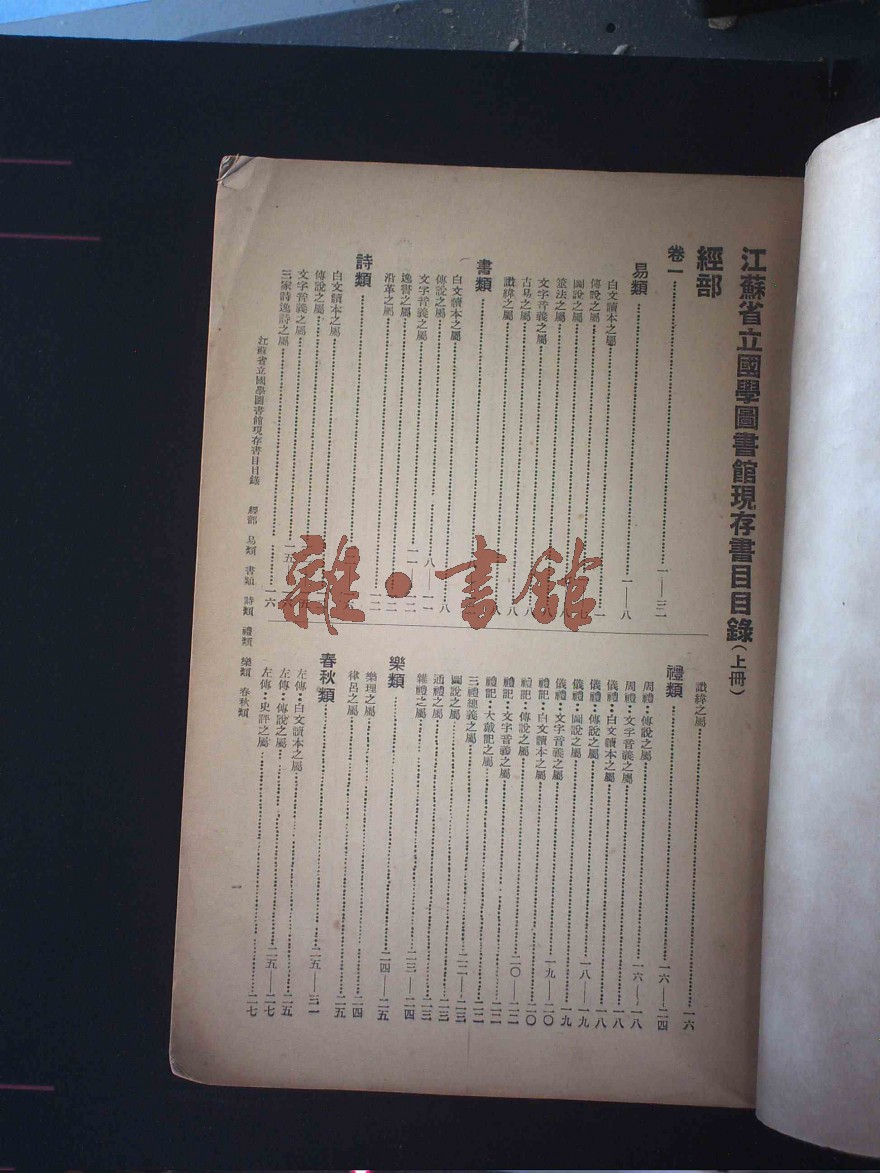 江蘇省立國學圖書館現存書目目錄(上冊)
經部
卷一……一—三一
易類……一—八
白文讀本之屬……一
傳說之屬……
圖說之屬……七
筮法之屬……八
文字音義之屬……八
古易之屬……八
讖緯之屬……八
書類……八
白文讀本之屬……八
傳說之屬……八—一一
文字音義之屬……
逸書之屬……
沿革之屬……
詩類……
白文讀本之屬……
傳說之屬……
文字音義之屬……
三家詩逸詩之屬……
讖緯之屬……一六
禮類……一六—二四
周禮‥傳說之屬……一六—一八
周禮‥文字音義之屬……一八
儀禮‥白文讀本之屬……一八
儀禮‥傳說之屬……一八—一九
儀禮‥圖說之屬……一九
儀禮‥文字音義之屬……一九
禮記‥白文讀本之屬……一九—二〇
禮記‥傳說之屬……二〇
禮記‥文字音義之屬……
禮記‥大戴記之屬……
三禮總義之屬……
圖說之屬……
通禮之屬……二三
雜禮之屬……二三
樂類……二三—二四
樂理之屬……二四—二五
律呂之屬……二四
春秋類……二五—三一
左傳‥白文讀本之屬……二五
左傳‥傳說之屬……二五—二七
左傳‥史評之屬……二七
江蘇省立國學圖書館現存書目目錄 經部 易類 書類 詩類 禮類 樂類 春秋類
一
雜·書館